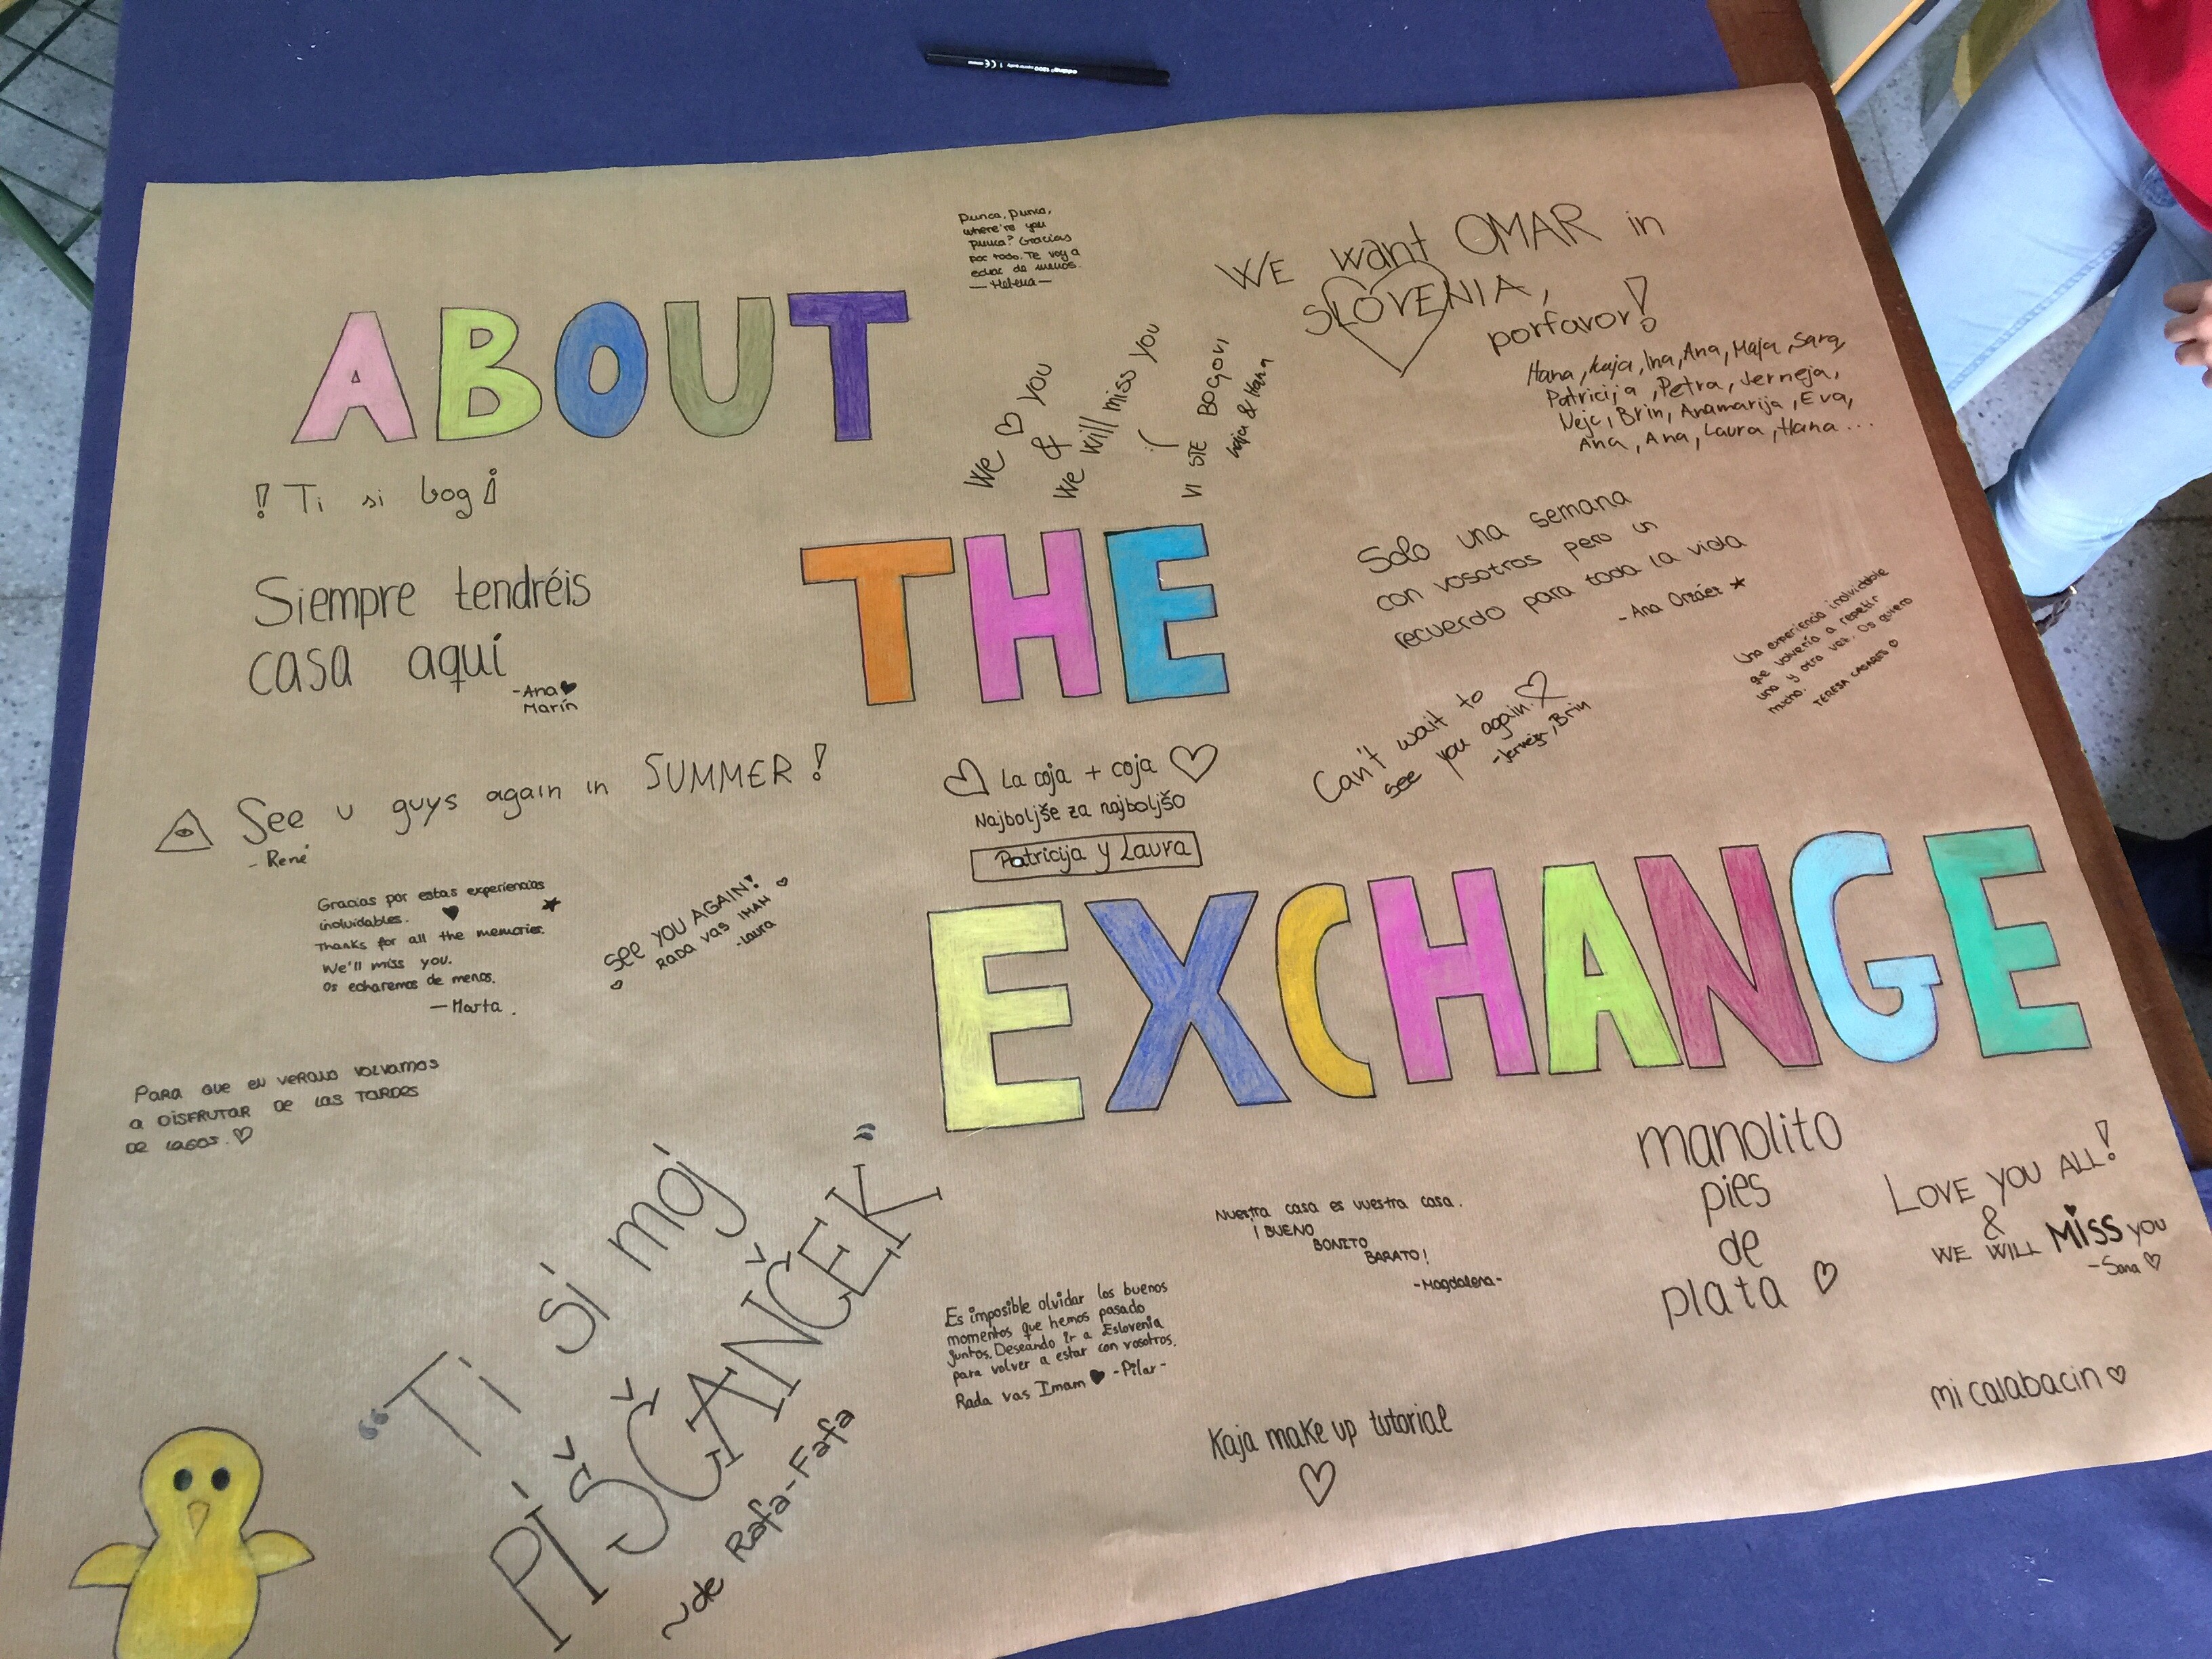 edding 1200
Punca, punca,
where're you
punca? Gracias
por todo. Te voy a
echar de menos.
—Helena—
WE want OMAR in
SLOVENIA,
porfavor!
Hana, Kaja, Ina, Ana, Maja, Sara,
Patricija, Petra, Jerneja,
Nejc, Brin, Anamarija, Eva,
Ana, Ana, Laura, Hana...
ABOUT
! Ti si bog !
We ♡ you
&
We will miss you
:(
VI STE BOGOVI
Kaja & Hana
Siempre tendréis
casa aquí
-Ana ♥
Marín
THE
Solo una semana
con vosotros pero un
recuerdo para toda la vida
- Ana Orzáez ★
Una experiencia inolvidable
que volvería a repetir
una y otra vez. Os quiero
mucho.
TERESA CASARES ♡
Can't wait to
see you again. ♡
-Jerneja, Brin
See u guys again in SUMMER!
- René
♡ La coja + coja ♡
Najboljše za najboljšo
Patricija y Laura
Gracias por estas experiencias
inolvidables. ♥ ★
Thanks for all the memories.
We'll miss you.
Os echaremos de menos.
—Marta.
SEE YOU AGAIN! ♡
♡ RADA VAS IMAM
-Laura
EXCHANGE
PARA QUE EN VERANO VOLVAMOS
A DISFRUTAR DE LAS TARDES
DE LAGOS. ♡
"Ti si moj
PIŠČANČEK"
~de Rafa-Fafa
Nuestra casa es vuestra casa.
¡BUENO
BONITO
BARATO!
-Magdalena-
manolito
pies
de
plata ♡
LOVE YOU ALL!
&
WE WILL MISS YOU
-Sara ♡
Es imposible olvidar los buenos
momentos que hemos pasado
juntos. Deseando ir a Eslovenia
para volver a estar con vosotros.
Rada vas Imam ♥ -Pilar-
mi calabacin ♡
Kaja make up tutorial
♡